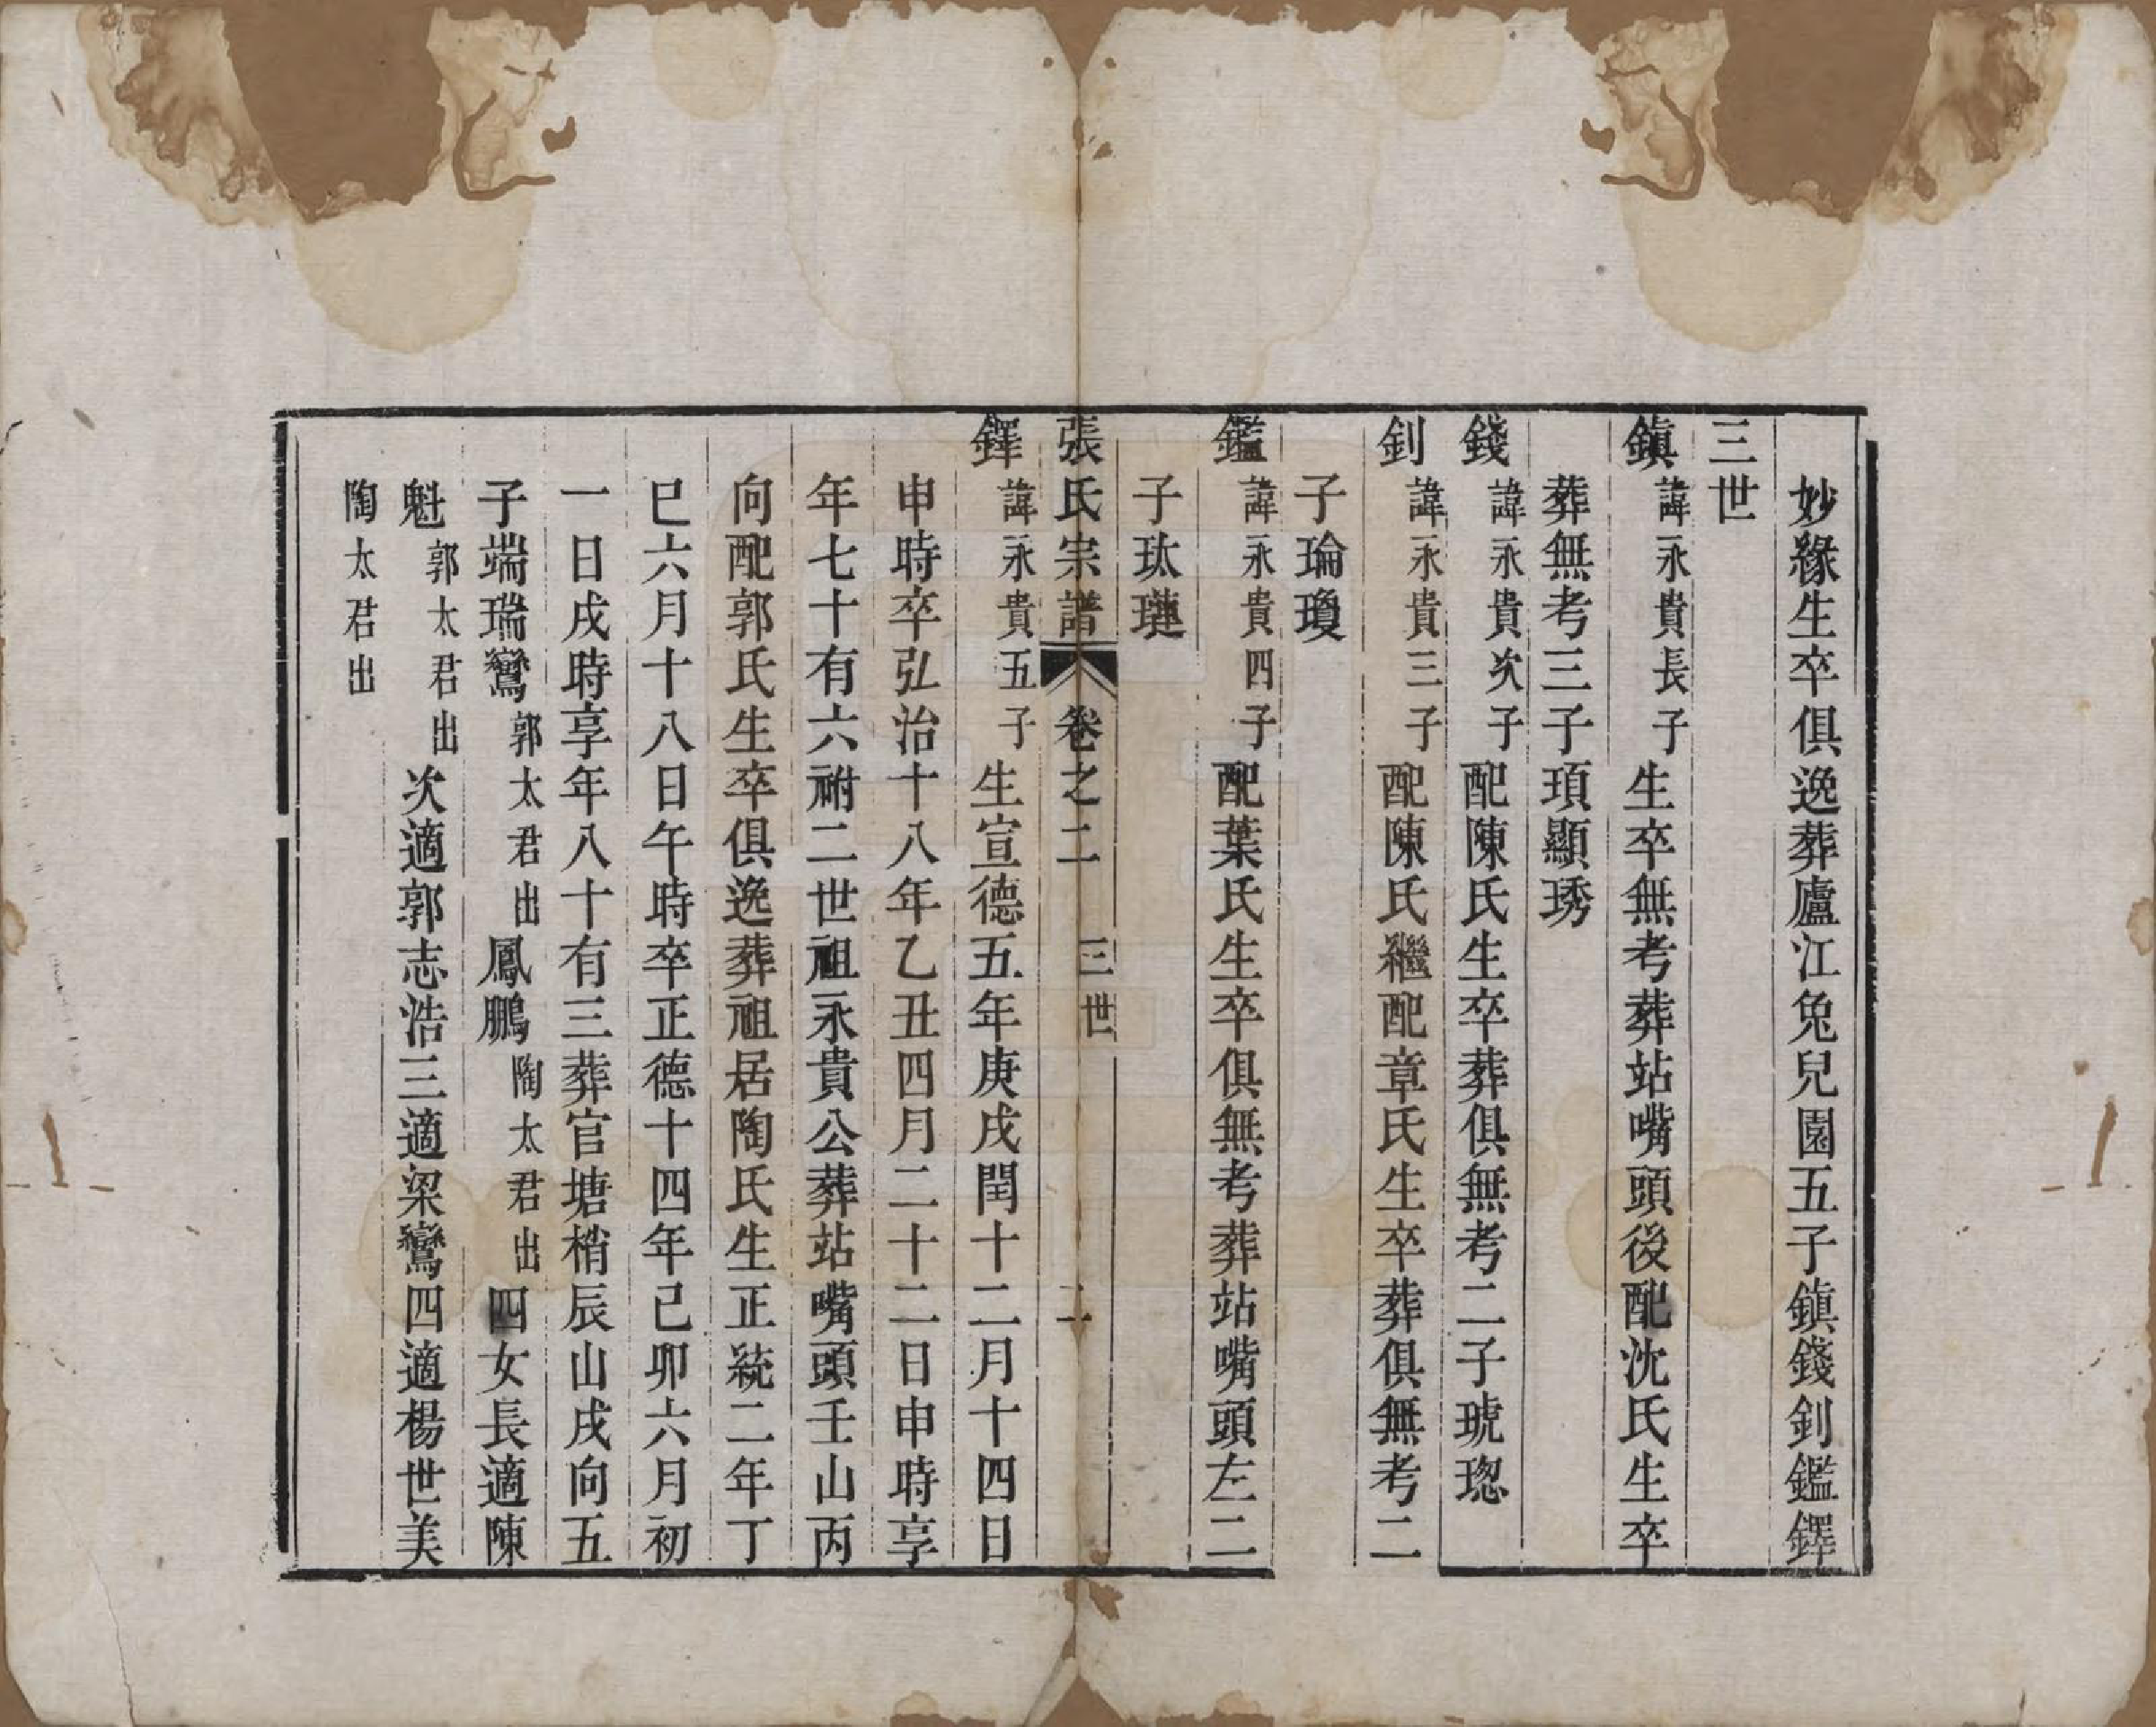 妙緣生卒俱逸葬廬江兔兒園五子鎮錢釗鑑鐸
三世
鎮諱永貴長子生卒無考葬站嘴頭後配沈氏生卒
葬無考三子頊顯琇
錢諱永貴次子配陳氏生卒葬俱無考二子琥璁
釗諱永貴三子配陳氏繼配章氏生卒葬俱無考二
子瑜瓊
鑑諱永貴四子配葉氏生卒俱無考葬站嘴頭左二
子玞璉
張氏宗譜 卷之二 三世 二
鐸諱永貴五子生宣德五年庚戌閏十二月十四日
申時卒弘治十八年乙丑四月二十二日申時享
年七十有六祔二世祖永貴公葬站嘴頭壬山丙
向配郭氏生卒俱逸葬祖居陶氏生正統二年丁
巳六月十八日午時卒正德十四年己卯六月初
一日戌時享年八十有三葬官塘梢辰山戌向五
子端瑞鸞郭太君出鳳鵬陶太君出四女長適陳
魁郭太君出次適郭志浩三適梁鸞四適楊世美
陶太君出